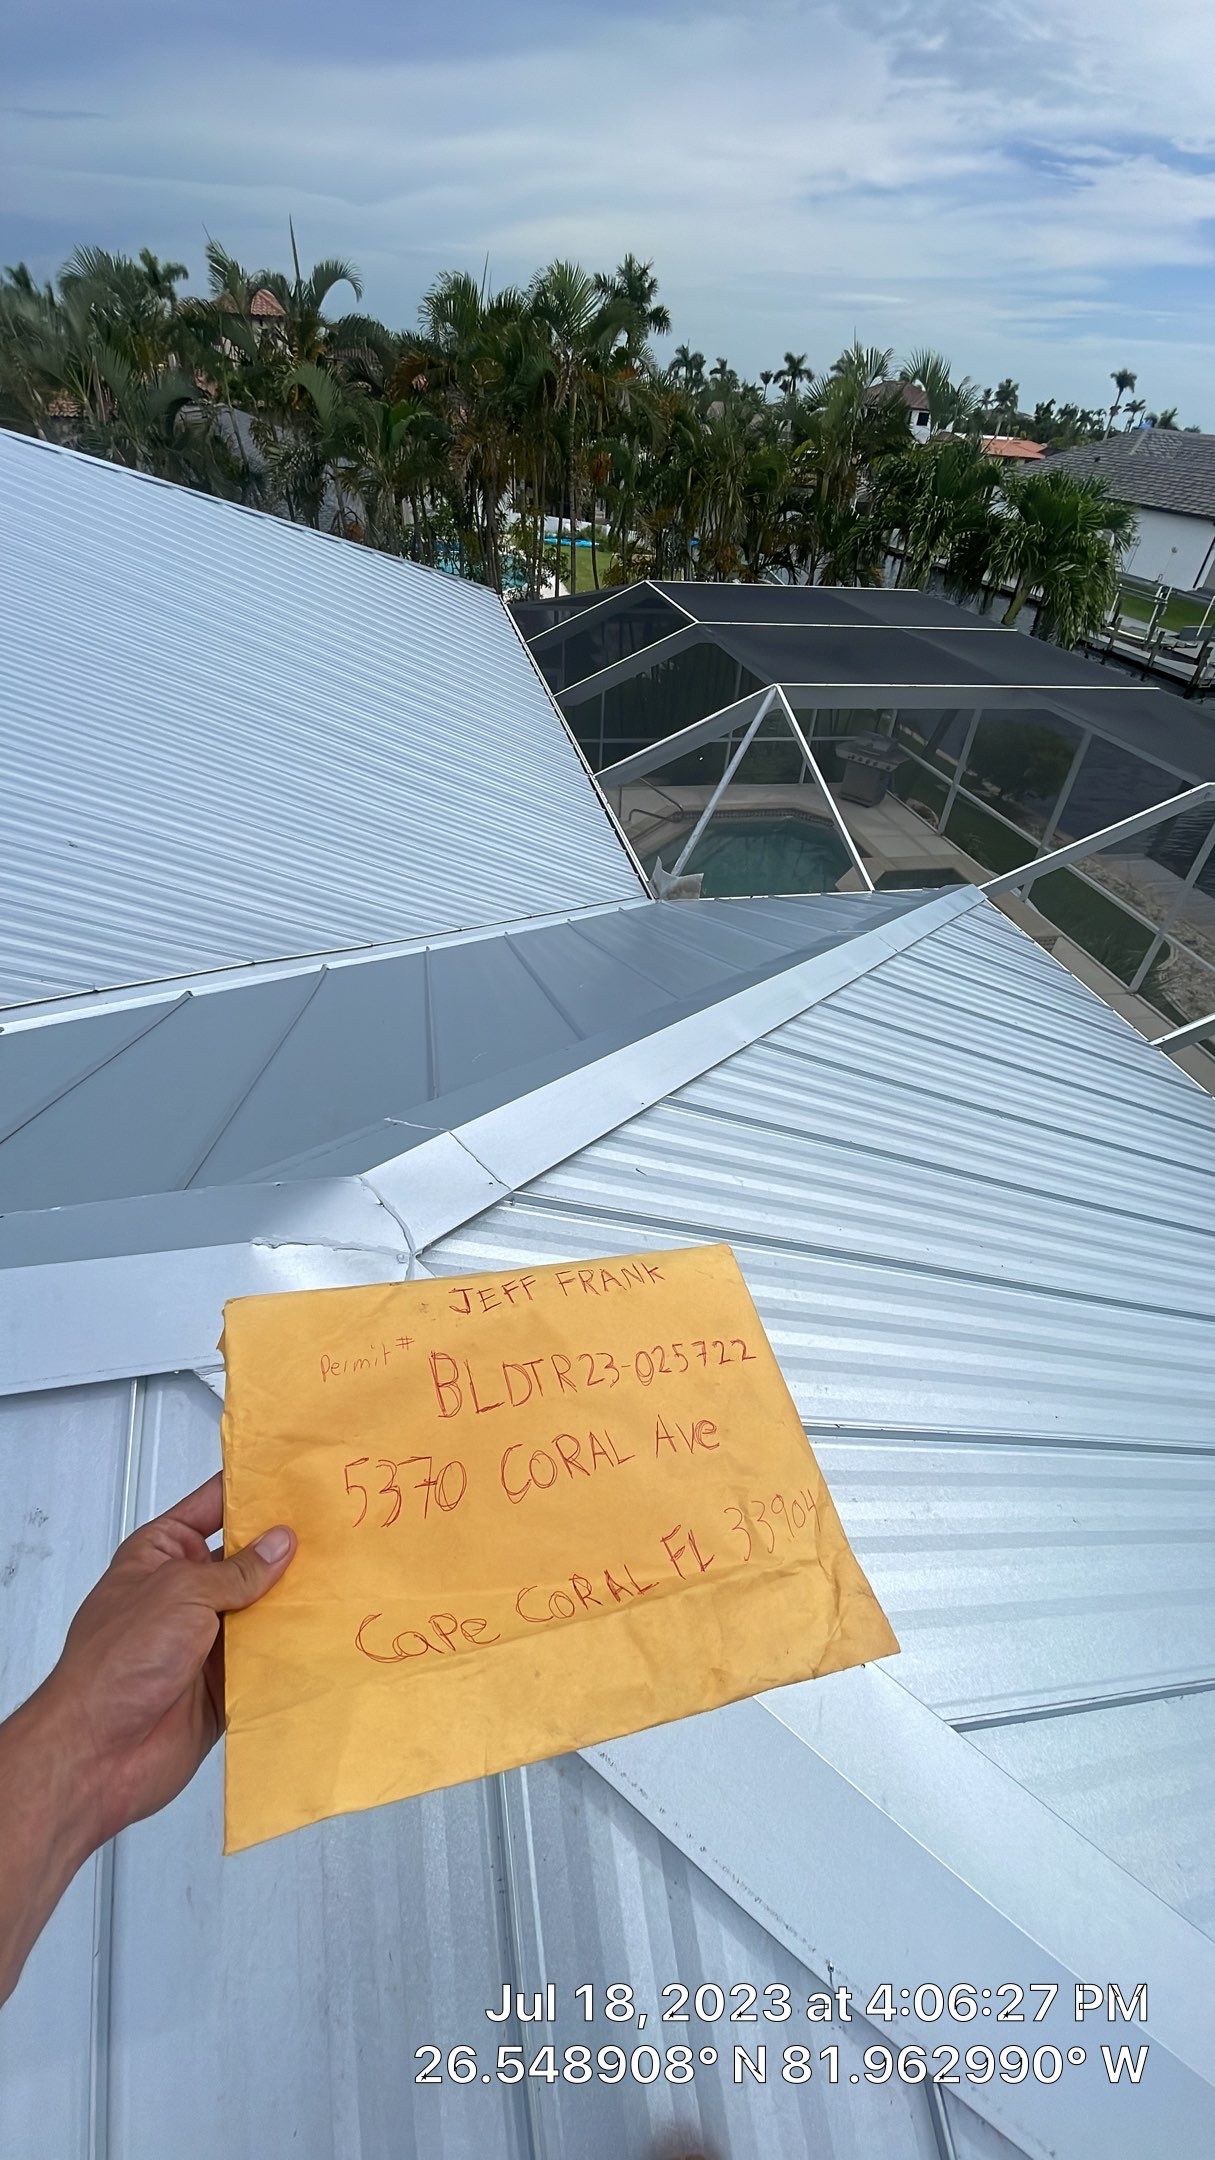 JEFF FRANK
Permit# BLDTR23-025722
5370 CORAL Ave
Cape CORAL FL 33904
Jul 18, 2023 at 4:06:27 PM
26.548908° N 81.962990° W